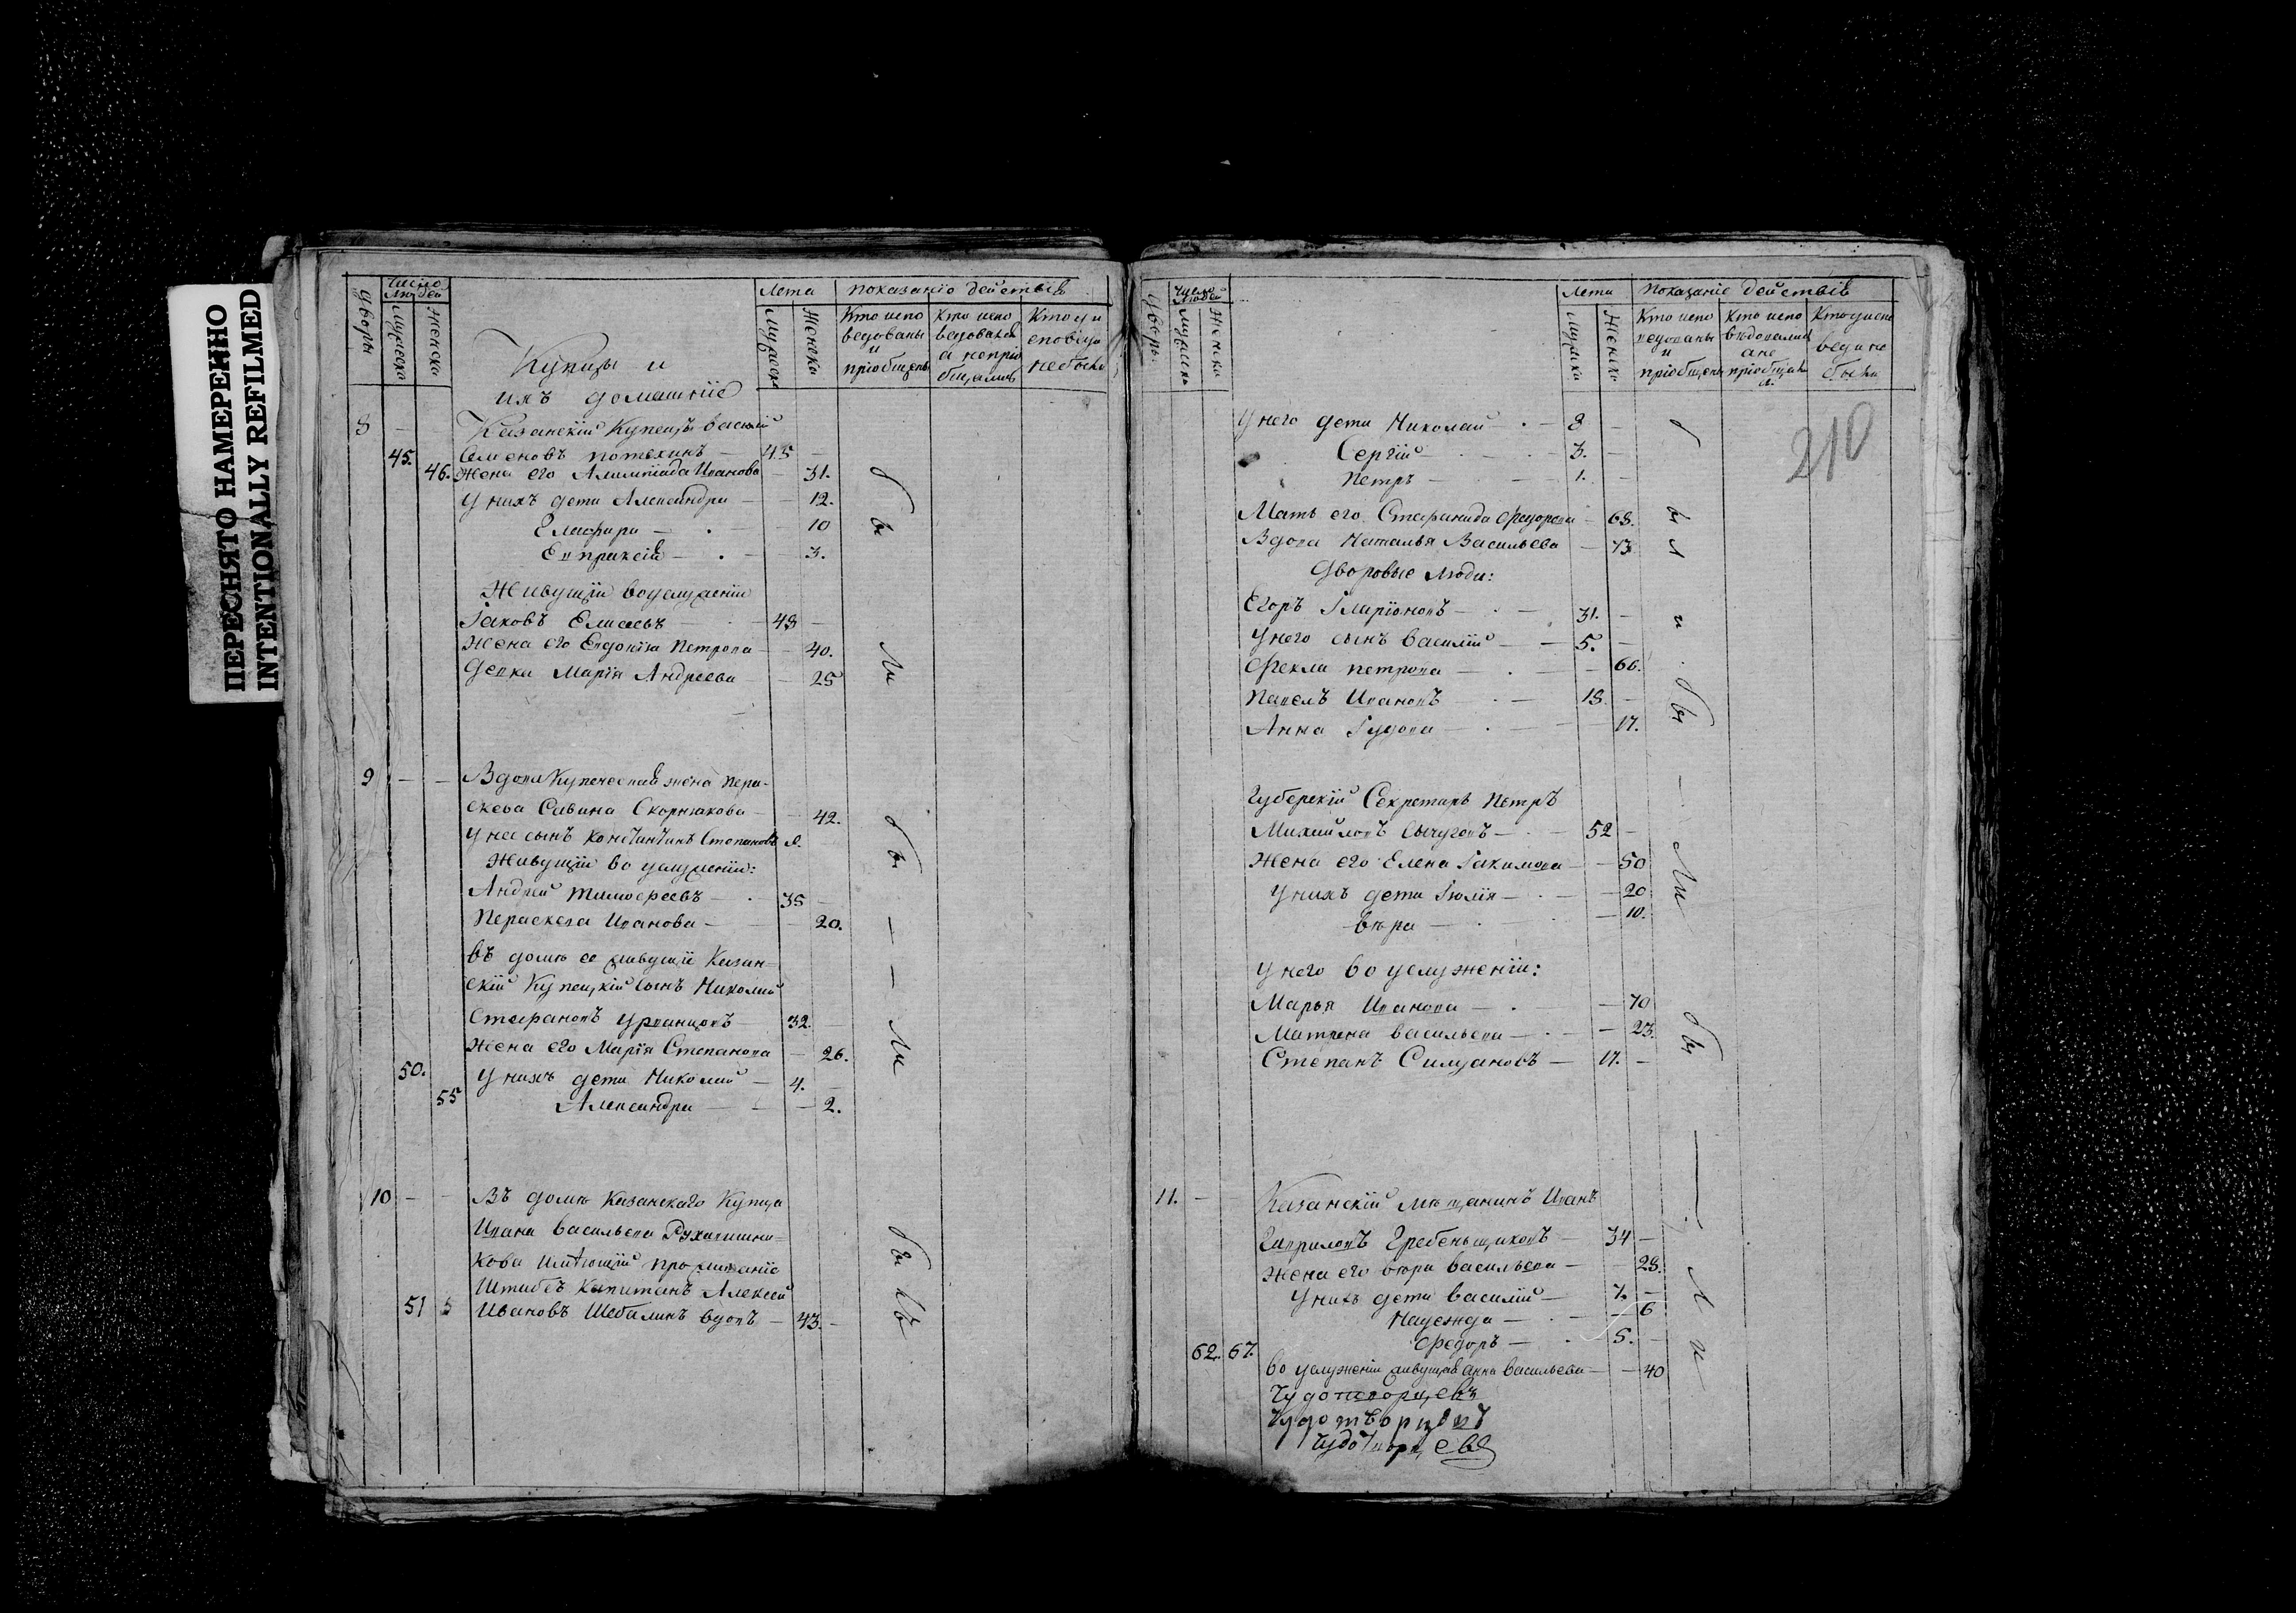 ПЕРЕСНЯТО НАМЕРЕННО
INTENTIONALLY REFILMED
Дворы
Число Людей
Мужеска
Женска
Лета
Мужеска
Женска
показанiо действiв
Кто испо ведованы и прiобщены
Кто испо
Купцы и
ихъ домашнiе
8 — — Казанскiй Купецъ василiй
45. Семеновъ потехинъ — 45 —
46. Жена его Алимпiада Иванова — 31.
у нихъ дети Александра — — 12.
Гликфира — — 10
Евпраксiя — — 3.
Живущiи воуслуженiи
Iаковъ Елисеевъ — 48 —
Жена его Евдокiя Петрова — 40.
Девка Марiя Андреева — — 25
бы
ли
9 — — Вдова Купеческая жена пера-
скева Савина Скорнякова — 42.
у нее сынъ Констынтинъ Степановъ
Живущiи во услуженiи:
Андрей тимофеевъ — 35 —
Пераскева Иванова — — 20.
въ доме ее живущiй Казан=
скiй Купецкiй сынъ Николай
Стефановъ Урванцовъ 32. —
жена его Марiя Степанова — 26.
50. у нихъ дети Николай — 4. —
55 Александра — — 2.
бы — — ли
10 — — Въ доме Казанскаго Купца
Ивана васильева Рукавишни=
кова имеющiй проживанiе
Штабсъ Капитанъ Алексей
51 Ивановъ Шебалинъ вдовъ — 43. —
бы
Дворы.
Число Людей
Мужеска
Женска
Лета
Мужска
Женска
Показанiе действiв
Кто испо ведованы и прiобщены
Кто испо ведовалис ане прiобщали
210
У него дети Николай — 8 —
Сергiй — 3. —
Петръ — 1. —
Мать его Стефанида Федорова — 68.
Вдова Наталья Васильева — 73
Дворовые люди:
Егоръ Iларiоновъ — 31. —
У него сынъ василiй — 5. —
Фекла петрова — — 66.
Павелъ Ивановъ — 18 —
Анна Iудова — 17.
бы — ли
Губерскiй Секретарь Петръ
Михайловъ Сычуговъ — 52 —
Жена его Елена Iакимова — 50
У нихъ дети Iюлiя — — 20
Вера — — 10.
У него во услуженiи:
Марья Иванова — — 70
Матрена васильева — — 23.
Степанъ Силуановъ — 17. —
бы
11. — Казанскiй мещанинъ Иванъ
Гавриловъ Гребеньщиковъ — 34 —
Жена его вера васильева — 28.
У нихъ дети василiй — 7. —
Надежда — — 6
Федоръ — 5. —
62. 67. во услуженiи живущая Анна васильева — — 40
ли
Чудотворцевъ
Чудотворцевъ
Чудотворцевъ